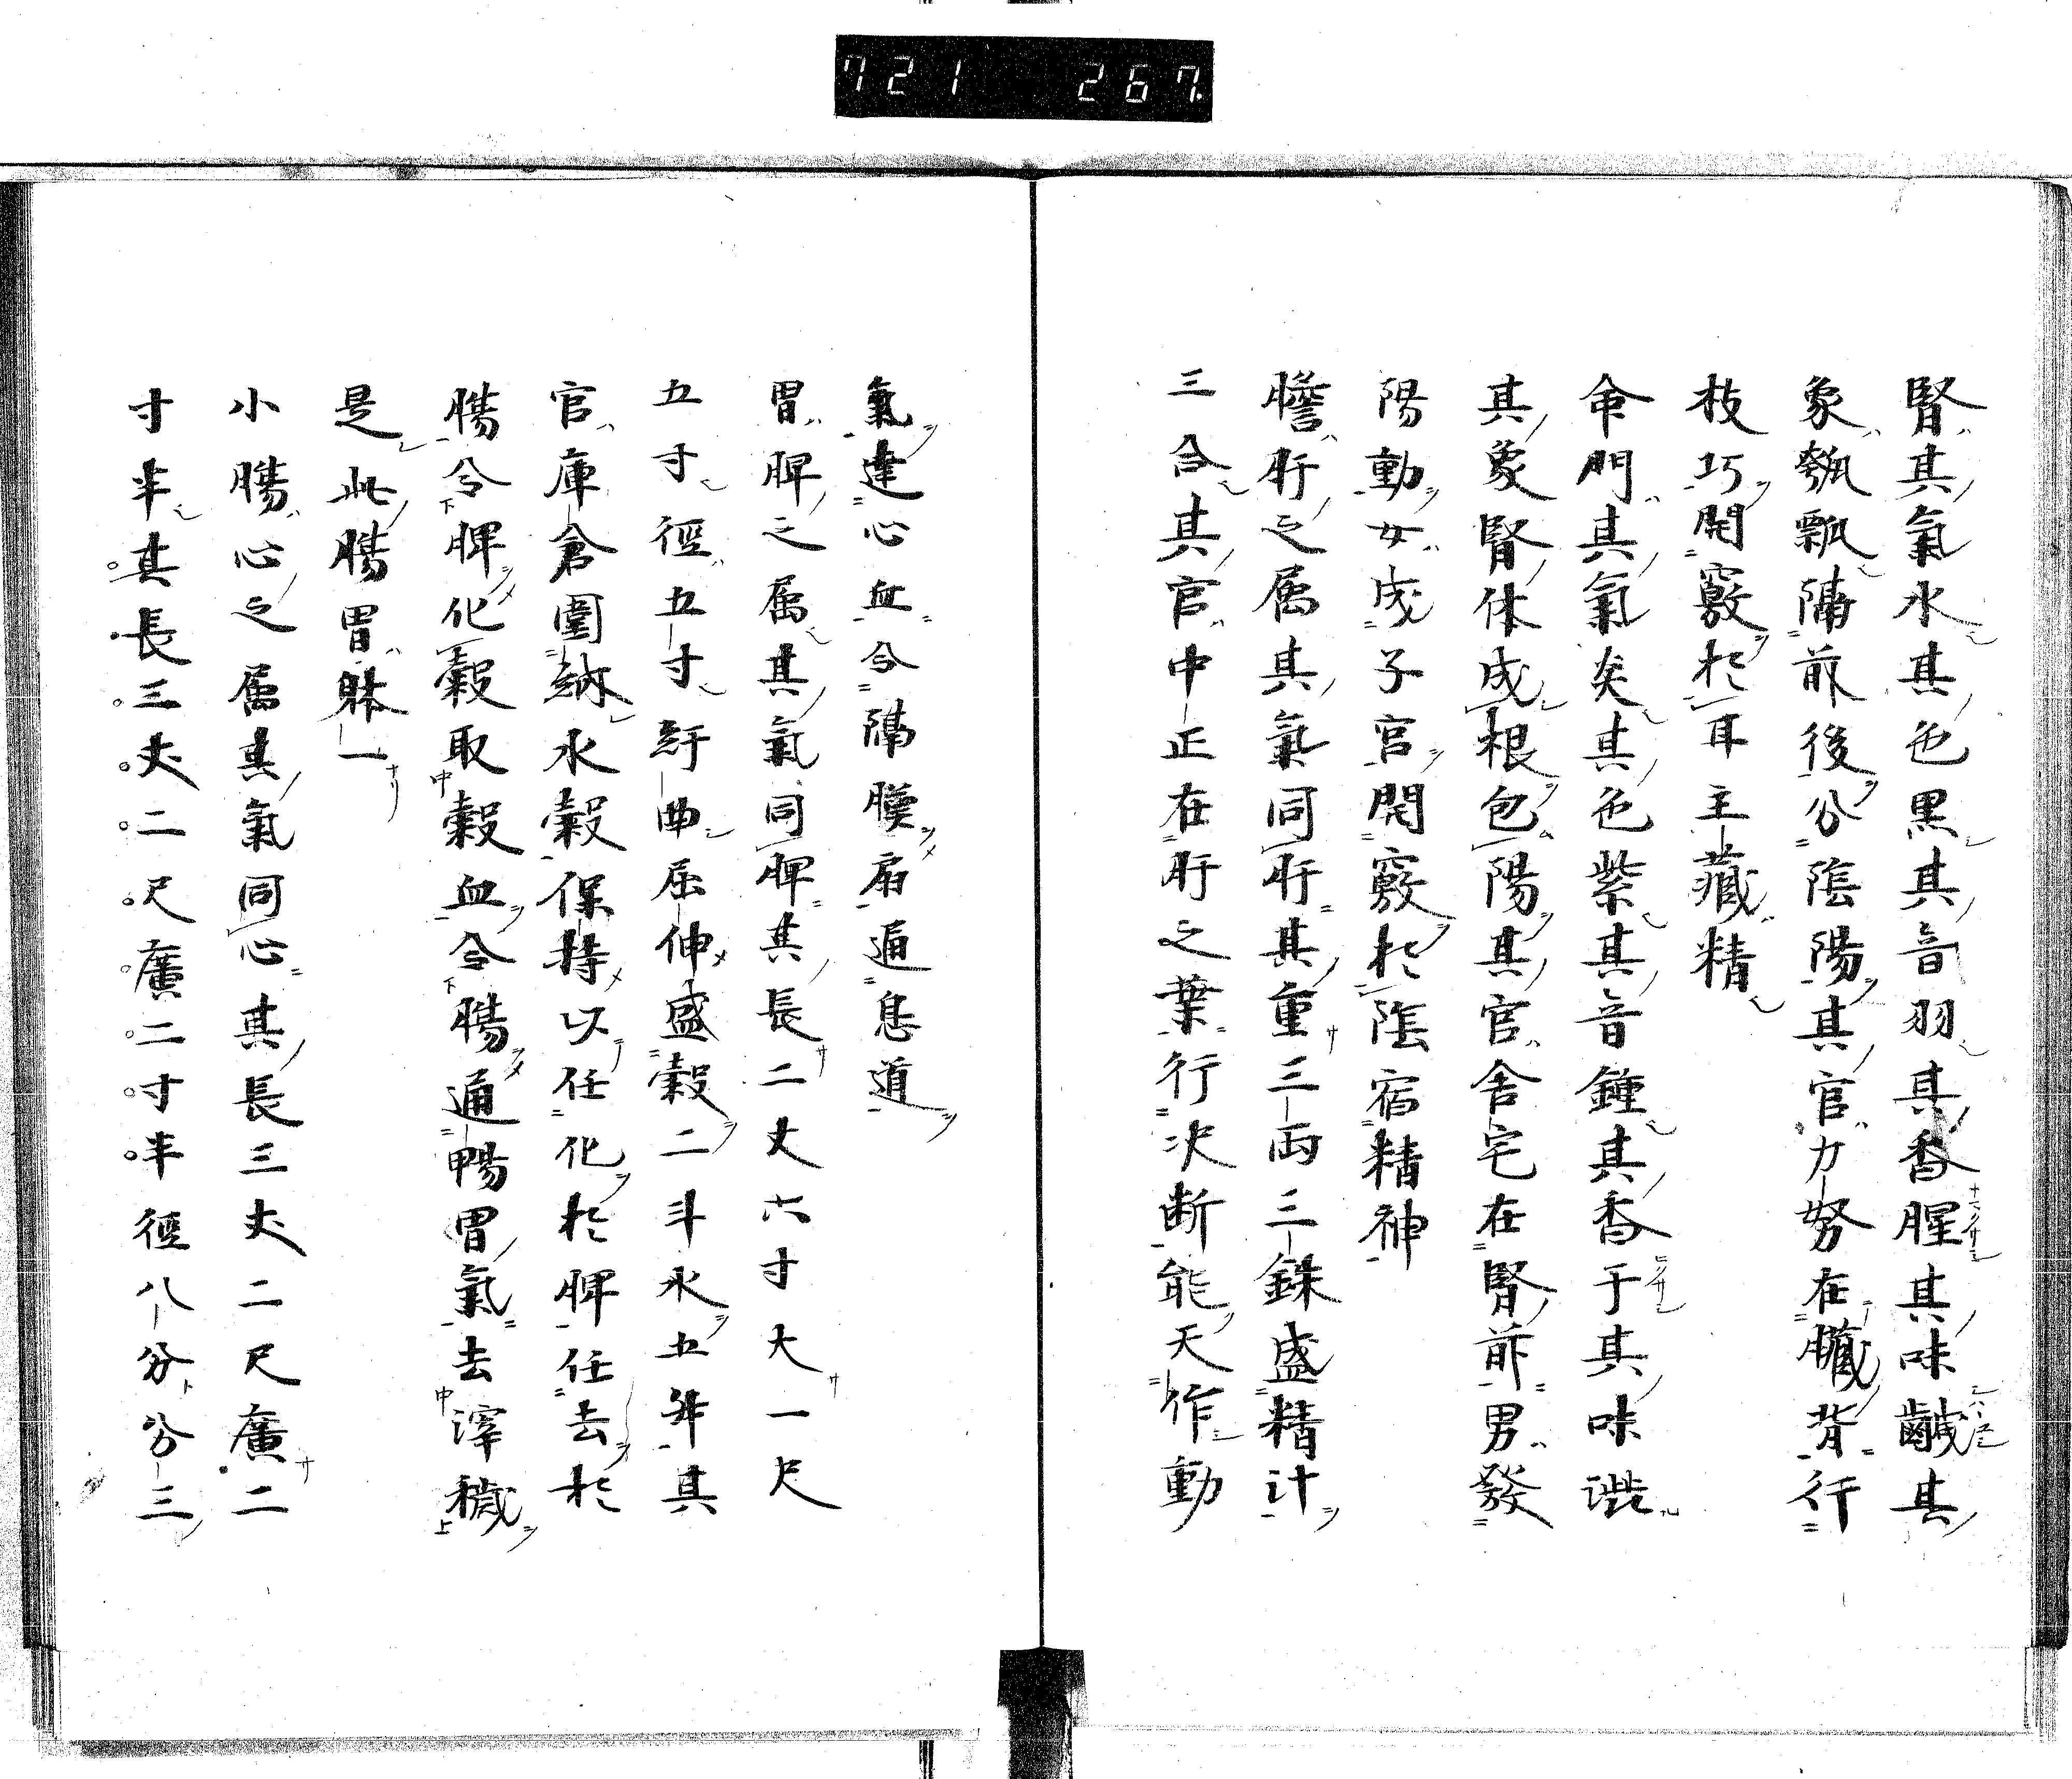 721 267
腎其氣水其色黒其音羽其香腥其味鹹其
象瓠瓢隔前後分陰陽其官力努在臓背行
枝巧開竅於耳主藏精
命門其氣炎其色紫其音鍾其香于其味澁
其象腎体成根包陽其官舎宅在腎前男發
陽動女成子宮開竅於陰宿精神
膽肝之属其氣同肝其重三両三銖盛精汁
三合其官中正在肝之葉行决断能天作動
氣達心血令隔膜扇通息道
胃脾之属其氣同脾其長二丈六寸大一尺
五寸徑五寸紆曲屈伸盛穀二斗水五舛其
官庫倉圍納水穀保持以任化於脾任去於
腸令脾化穀取穀血令腸通暢胃氣去滓穢
是此腸胃躰一
小腸心之属其氣同心其長三丈二尺廣二
寸半其長三丈二尺廣二寸半徑八分分三